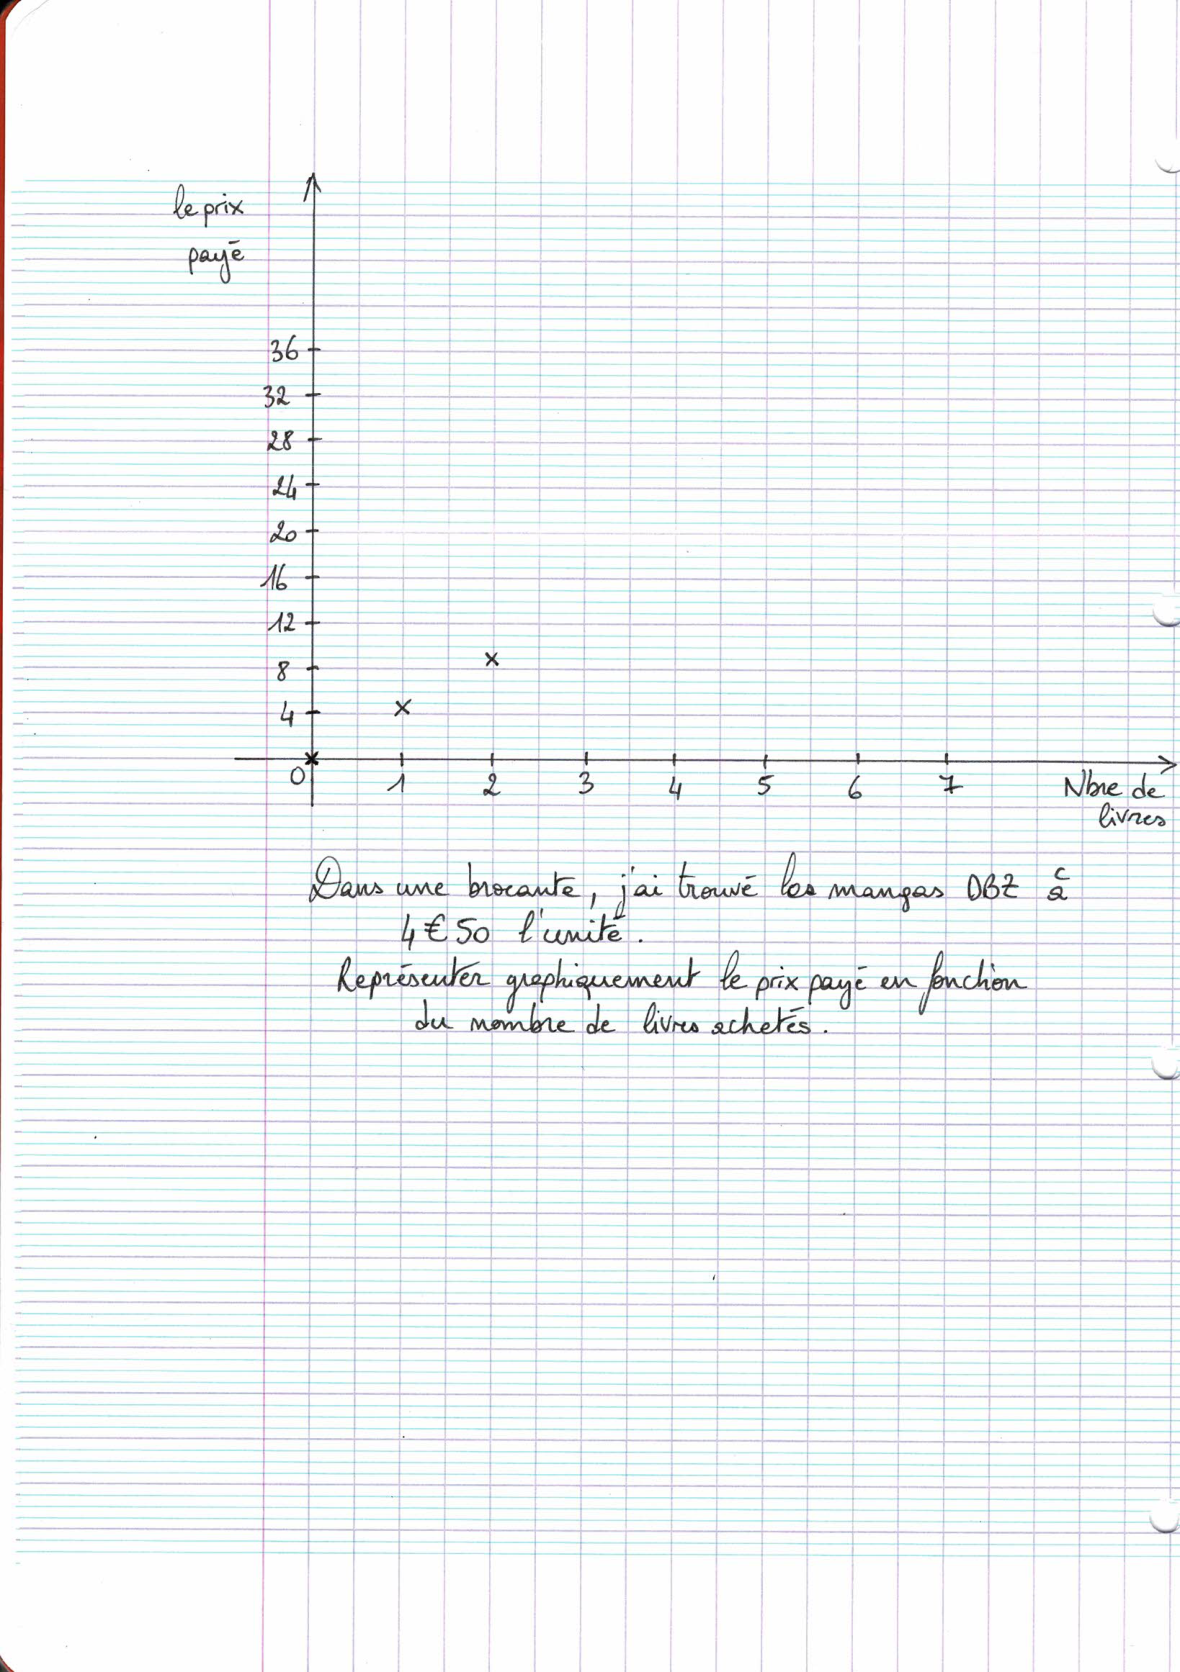 le prix
payé
36
32
28
24
20
16
12
8
4
0 1 2 3 4 5 6 7 Nbre de
livres
Dans une brocante, j'ai trouvé les mangas DBZ à
4€50 l'unité.
Représenter graphiquement le prix payé en fonction
du nombre de livres achetés.